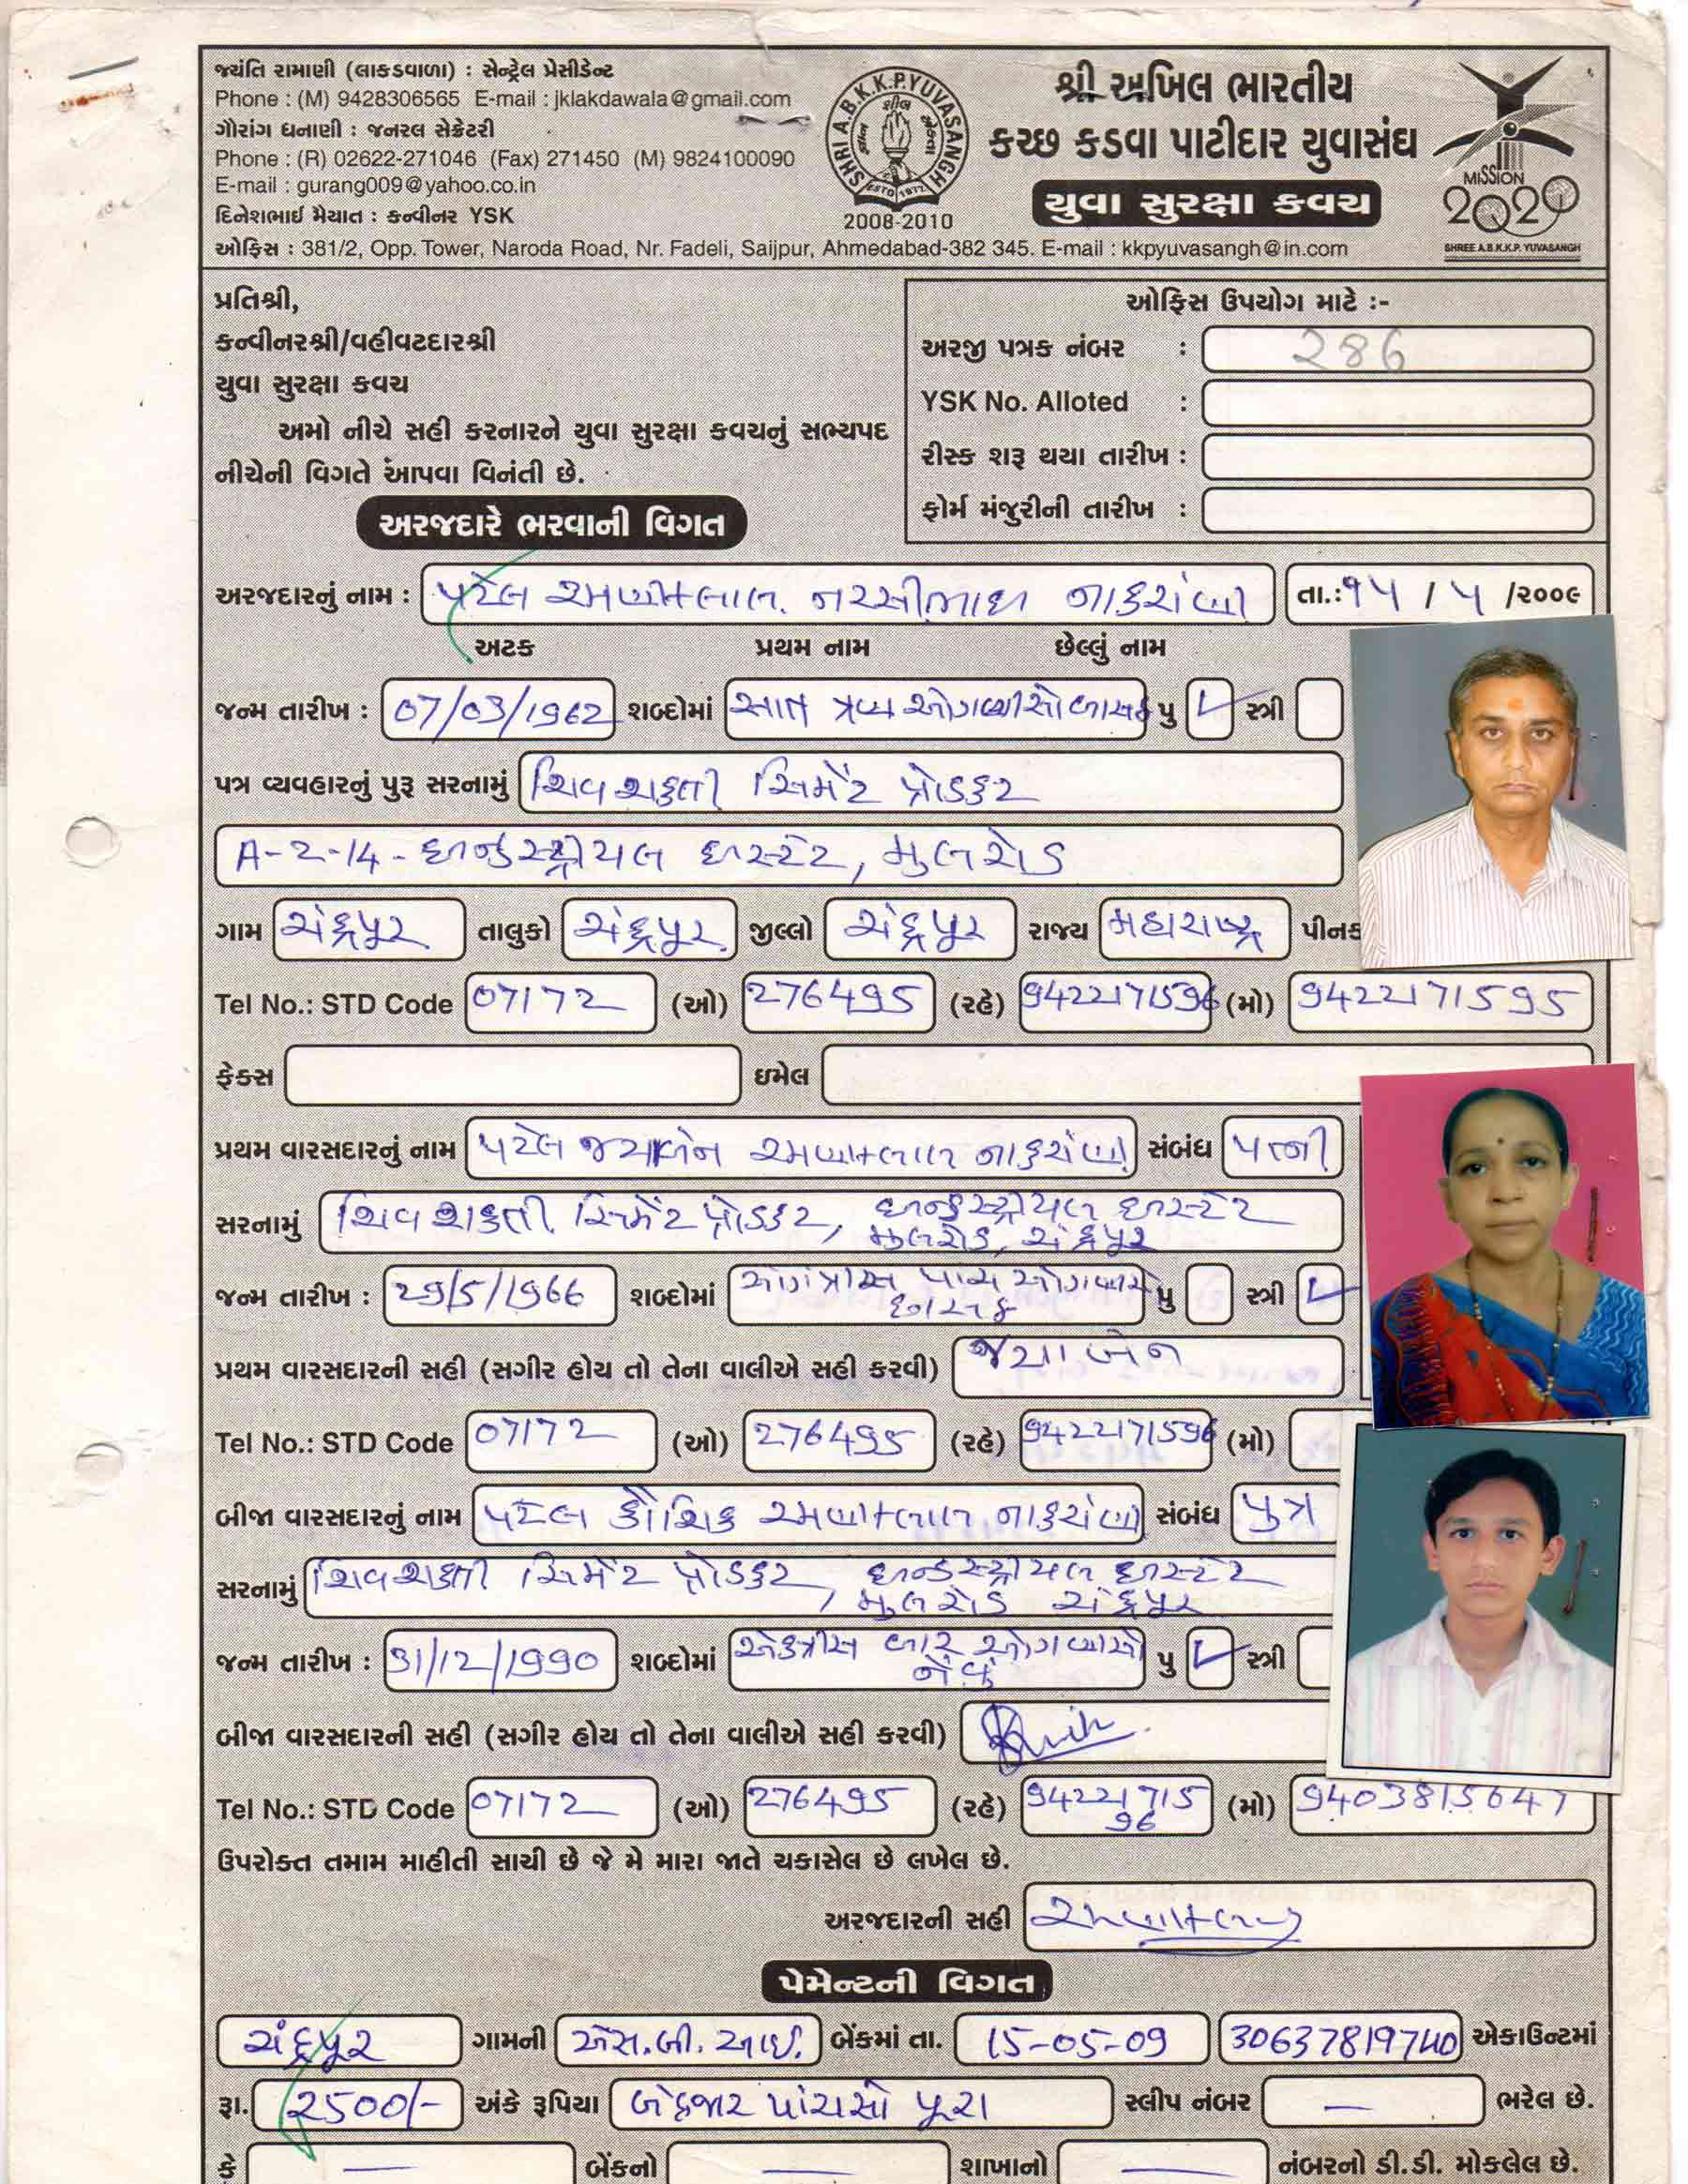 જયંતિ રામાણી (લાકડાવાળા) : સેન્ટ્રેલ પ્રેસીડેન્ટ
Phone : (M) 9428306565 E-mail : jklakdawala@gmail.com
ગૌરાંગ ધનાણી : જનરલ સેક્રેટરી
Phone : (R) 02622-271046 (Fax) 271450 (M) 9824100090
E-mail : gurang009@yahoo.co.in
દિનેશભાઈ મૈયાત : કન્વીનર YSK
SHRI A.B.K.K.P. YUVASANGH
ESTD 1977
2008-2010
શ્રી અખિલ ભારતીય
કચ્છ કડવા પાટીદાર યુવાસંઘ
યુવા સુરક્ષા કવચ
MISSION
2020
SHREE A.B.K.K.P. YUVASANGH
ઓફિસ : 381/2, Opp. Tower, Naroda Road, Nr. Fadeli, Saijpur, Ahmedabad-382 345. E-mail : kkpyuvasangh@in.com
પ્રતિશ્રી,
કન્વીનરશ્રી/વહીવટદારશ્રી
યુવા સુરક્ષા કવચ
અમો નીચે સહી કરનારને યુવા સુરક્ષા કવચનું સભ્યપદ
નીચેની વિગતે આપવા વિનંતી છે.
ઓફિસ ઉપયોગ માટે :-
અરજી પત્રક નંબર : 286
YSK No. Alloted :
રીસ્ક શરૂ થયા તારીખ :
ફોર્મ મંજુરીની તારીખ :
અરજદારે ભરવાની વિગત
અરજદારનું નામ : પટેલ રમણીકલાલ નરસીભાઇ નાકરાણી તા.:૧૫ / ૫ /૨૦૦૯
અટક પ્રથમ નામ છેલ્લું નામ
જન્મ તારીખ : 07/03/1962 શબ્દોમાં સાત ત્રણ ઓગણીસો બાસઠ પુ ✓ સ્ત્રી
પત્ર વ્યવહારનું પુરૂ સરનામું શિવ શક્તી સિમેંટ પ્રોડક્ટ
A-2-14-ઇન્ડસ્ટ્રીયલ ઇસ્ટેટ, મુલરોડ
ગામ ચંદ્રપુર તાલુકો ચંદ્રપુર જીલ્લો ચંદ્રપુર રાજ્ય મહારાષ્ટ્ર પીનક
Tel No.: STD Code 07172 (ઓ) 276495 (રહે) 9422171596 (મો) 9422171595
ફેક્સ ઇમેલ
પ્રથમ વારસદારનું નામ પટેલ જયાબેન રમણીકલાલ નાકરાણી સંબંધ પત્ની
સરનામું શિવ શક્તી સિમેંટ પ્રોડક્ટ, ઇન્ડસ્ટ્રીયલ ઇસ્ટેટ
મુલરોડ, ચંદ્રપુર
જન્મ તારીખ : 29/5/1966 શબ્દોમાં ઓગંત્રીસ પાંચ ઓગણીસો
છાસઠ પુ સ્ત્રી ✓
પ્રથમ વારસદારની સહી (સગીર હોય તો તેના વાલીએ સહી કરવી) જયાબેન
Tel No.: STD Code 07172 (ઓ) 276495 (રહે) 9422171596 (મો)
બીજા વારસદારનું નામ પટેલ કૌશિક રમણીકલાલ નાકરાણી સંબંધ પુત્ર
સરનામું શિવ શક્તી સિમેંટ પ્રોડક્ટ, ઇન્ડસ્ટ્રીયલ ઇસ્ટેટ
મુલરોડ ચંદ્રપુર
જન્મ તારીખ : 31/12/1990 શબ્દોમાં એકત્રીસ બાર ઓગણીસો
નેવું પુ ✓ સ્ત્રી
બીજા વારસદારની સહી (સગીર હોય તો તેના વાલીએ સહી કરવી)
Tel No.: STD Code 07172 (ઓ) 276495 (રહે) 94221715
96 (મો) 9403815647
ઉપરોક્ત તમામ માહીતી સાચી છે જે મે મારા જાતે ચકાસેલ છે લખેલ છે.
અરજદારની સહી રમણીકલાલ
પેમેન્ટની વિગત
ચંદ્રપુર ગામની એસ.બી.આઈ. બેંકમાં તા. 15-05-09 30637819740 એકાઉન્ટમાં
રૂા. 2500/- અંકે રૂપિયા બે હજાર પાંચસો પૂરા સ્લીપ નંબર — ભરેલ છે.
કે — બેંકનો — શાખાનો — નંબરનો ડી.ડી. મોકલેલ છે.